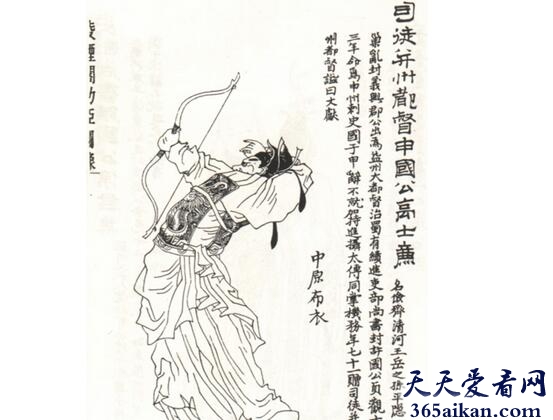 司徒并州都督申國公高士廉
名儉齊清河王岳之孫平
巢亂封義興郡公出為益州大都督治蜀有績進吏部尚書封許國公貞觀十
三年命為申州刺史國于申辭不就加特進攝太傅同掌機務年七十一贈司徒并
州都督諡曰文獻
中原布衣
凌煙閣功臣圖像
天天爱看网
365aikan.com